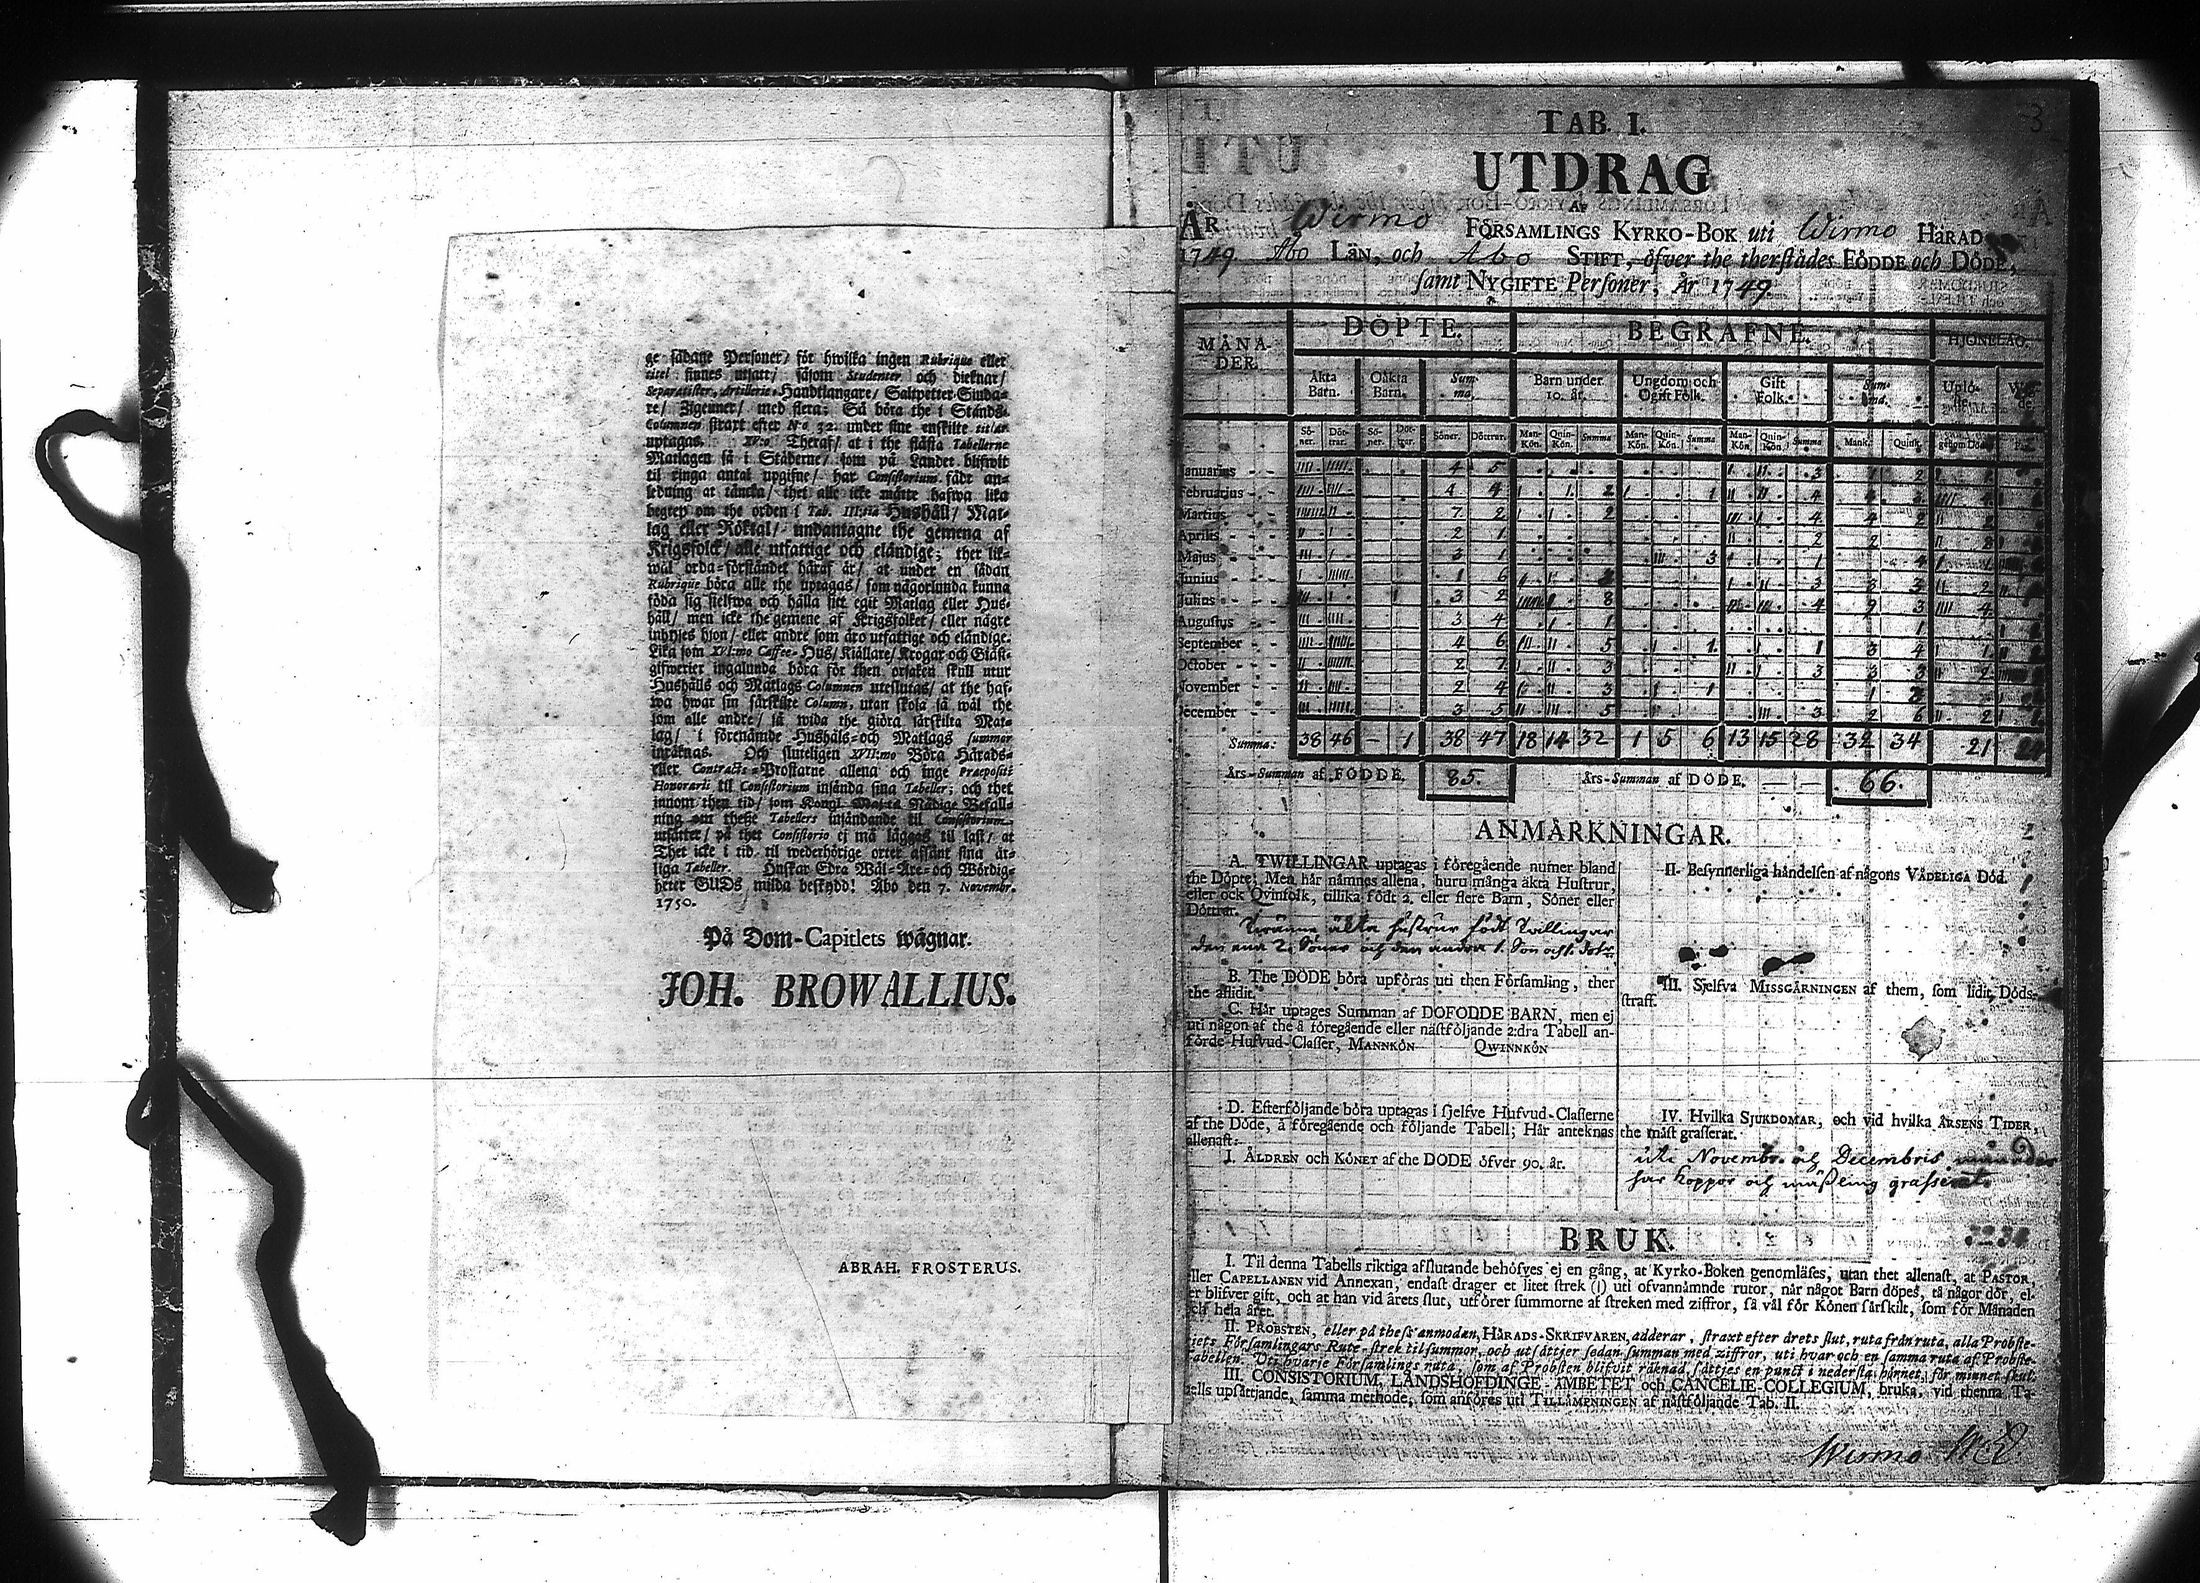 ge sådane Personer/ för hwilka ingen Rubrique eller
titel finnes utsatt/ såsom Studenter och dieknar/
Separatister, Artillerie-Handtlangare/ Saltpetter-Siuda-
re/ Zigeuner/ med flera; Så böra the i Stånds-
Columnen straxt efter No 32. under sine enskilte titlar
uptagas. XV:o Theraf/ at i the flästa Tabellerne
Matlagen så i Städerne/ som på Landet blifwit
til ringa antal upgifne/ har Consistorium fådt an-
ledning at täncka/ thet alle icke måtte hafwa lika
begrep om the orden i Tab. III:tia Hushåll/ Mat-
lag eller Röktal/ undantagne the gemena af
Krigsfolck/ alle utfattige och eländige; ther lik-
wäl orda-förståndet häraf är/ at under en sådan
Rubrique böra alle the uptagas/ som någorlunda kunna
föda sig sielfwa och hålla sitt egit Matlag eller Hus-
håll/ men icke the gemene af Krigsfolket/ eller någre
inhyses hion/ eller andre som äro utfattige och eländige.
Lika som XVI:mo Caffee-Hus/ Källare/ Krogar och Gäst-
gifwerier ingalunda böra för then orsaken skull utur
Hushålls och Matlags Columnen uteslutas/ at the haf-
wa hwar sin särskilte Column, utan skola så wäl the
som alle andre/ så wida the giöra särskilta Mat-
lag/ i förenämde Hushåls- och Matlags summor
inräknas. Och sluteligen XVII:mo Böra Härads-
eller Contracts-Prostarne allena och inge Praepositi
Honorarii til Consistorium insända sina Tabeller; och thet
innom then tid/ som Kongl. Maj:ts Nådige Befall-
ning om theße Tabellers insändande til Consistorium
utsätter/ på thet Consistorio ei må läggas til last/ at
Thet icke i tid til wederhörige orter affänt sina år-
liga Tabeller. Önskar Edra Wäl-Äre- och Wördig-
heter GUDs milda beskydd! Åbo den 7. Novembr.
1750.
På Dom-Capitlets wägnar.
JOH. BROWALLIUS.
ABRAH. FROSTERUS.
3
TAB. I.
UTDRAG
AF
ÅR Wirmo FÖRSAMLINGS KYRKO-BOK uti Wirmo HÄRAD
1749 Åbo LÄN, och Åbo STIFT, öfver the therstädes FÖDDE och DÖDE,
samt NYGIFTE Personer, År 1749
MÅNA-DER. DÖPTE. BEGRAFNE. HJONELAG.
Äkta Barn. Oäkta Barn. Summa. Barn under 10. år. Ungdom och Ogift Folk. Gift Folk. Summa.
Söner. Döttrar. Söner. Döttrar. Söner. Döttrar. Man-Kön. Quin-Kön. Summa Man-Kön. Quin-Kön. Summa Man-Kön. Quin-Kön. Summa Mank. Quink. genom Död
Januarius 4 5 3 1 2
Februarius 4 4 2 1 4
Martius 7 2 2 4 4 2
Aprilis 2 1 2 2
Majus 3 1 3 1 4
Junius 1 6 3 3 3 2
Julius 3 2 8 4 9 3 4
Augustus 3 4 1 1
September 4 6 5 1 1 3 4 1
October 2 7 3 3 3 3 2
November 2 4 3 1 1
December 3 5 5 3 2 6 2
Summa: 38 46 – 1 38 47 18 14 32 1 5 6 13 15 28 32 34 21
Års-Summan af FÖDDE. 85. Års-Summan af DÖDE. 66.
ANMÄRKNINGAR.
A. TWILLINGAR uptagas i föregående numer bland
the Döpte; Men här nämnes allena, huru många äkta Hustrur,
eller ock Qvinfolk, tillika födt 2. eller flere Barn, Söner eller
Döttrar.
äkta hustrur födt Twillingar
den ena 2. Söner och den andra 1. Son och 1. dotr
B. The DÖDE böra upföras uti then Församling, ther
the aflidit.
C. Här uptages Summan af DÖFÖDDE BARN, men ej
uti någon af the å föregående eller nästföljande 2:dra Tabell an-
förde Hufvud-Classer, MANNKÖN QWINNKÖN
D. Efterföljande böra uptagas i sjelfve Hufvud-Classerne
af the Döde, å föregående och följande Tabell; Här anteknas
allenast:
I. ÅLDREN och KÖNET af the DÖDE öfver 90. år.
II. Besynnerliga händelsen af någons VÅDELIGA Död.
III. Sjelfva MISSGÄRNINGEN af them, som lidit Döds-
straff.
IV. Hvilka SJUKDOMAR, och vid hvilka ÅRSENS TIDER,
the mäst grasserat.
uti Novembr. och Decembris månader
har koppor och mäßling grasserat.
BRUK.
I. Til denna Tabells riktiga afslutande behöfves ej en gång, at Kyrko-Boken genomläses, utan thet allenast, at PASTOR,
eller CAPELLANEN vid Annexan, endast drager et litet strek (|) uti ofvannämnde rutor, når något Barn döpes, tå någor dör, el-
er blifver gift, och at han vid årets slut, utförer summorne af streken med ziffror, så väl för Könen särskilt, som för Månaden
och hela året.
II. PROBSTEN, eller på thess anmodan, HÄRADS-SKRIFVAREN, adderar, straxt efter årets slut, ruta från ruta, alla Probste-
riets Församlingars Rute-strek til summor, och utsättjer sedan summan med ziffror, uti hvar och en samma ruta af Probste-
tabellen. Uti hvarje Församlings ruta, som af Probsten blifvit räknad, sättjes en punct i nedersta hörnet, för minnet skul.
III. CONSISTORIUM, LANDSHÖFDINGE-ÄMBETET och CANCELIE-COLLEGIUM, bruka, vid thenna Ta-
bells upsättjande, samma methode, som anföres uti TILLÄMPNINGEN af nästföljande Tab. II.
Wirmo